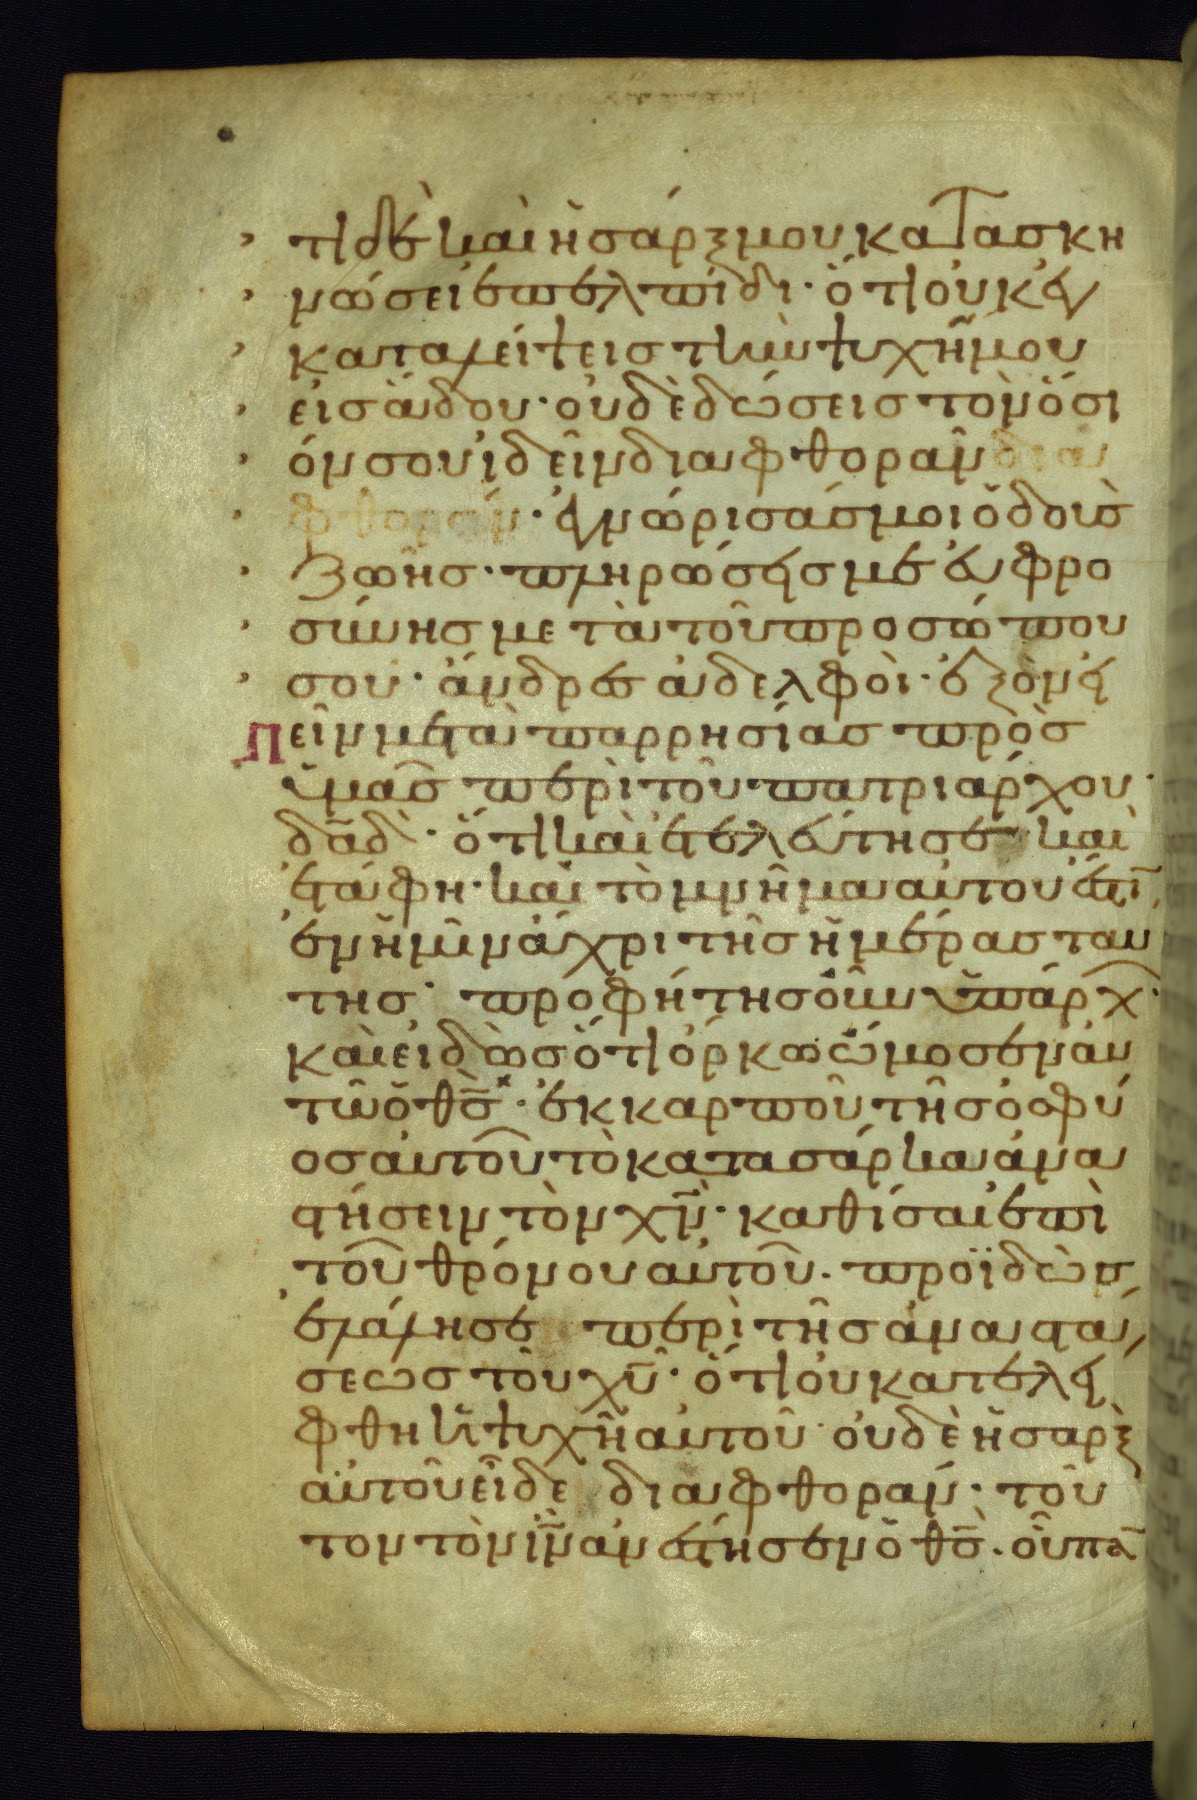 τι δὲ καὶ ἡ σάρξ μου κατασκη
νώσει ἐπ ἐλπίδι · ὅτι οὐκ ἐν
καταλείψεις τὴν ψυχήν μου
εἰς ἅδου · οὐδὲ δώσεις τὸν ὅσι
όν σου ἰδεῖν διαφθοράν δια
φθοράν · ἐγνώρισάς μοι ὁδοὺς
ζωῆς · πληρώσεις με εὐφρο
σύνης μετὰ τοῦ προσώπου
σου · ἄνδρες ἀδελφοὶ · ἐξὸν εἰ
πεῖν μετὰ παρρησίας πρὸς
ὑμᾶς περὶ τοῦ πατριάρχου ·
δᾱδ̀ · ὅτι καὶ ἐτελεύτησε καὶ
ἐτάφη · καὶ τὸ μνῆμα αὐτοῦ ἐστὶ
ἐν ἡμῖν ἄχρι τῆς ἡμέρας ταύ
της · προφήτης οὖν ὑπάρχ ·
καὶ εἰδὼς ὅτι ὅρκω ὤμοσεν αὐ
τῶ ὁ θς̄ · ἐκ καρποῦ τῆς ὀσφύ
ος αὐτοῦ τὸ κατα σάρκα ἀνα
στήσειν τὸν χν̄ · καθίσαι ἐπὶ
τοῦ θρόνου αὐτοῦ · προϊδὼν
ἐλάλησε περὶ τῆς ἀναστά
σεως τοῦ χῡ · ὅτι οὐ κατελεί
φθη ἡ ψυχὴ αὐτοῦ · οὐδὲ ἡ σὰρξ
αὐτοῦ εἶδε διαφθοράν · τοῦ
τον τὸν ιν̄ ἀνέστησεν ὁ θς̄ · οὗ πα